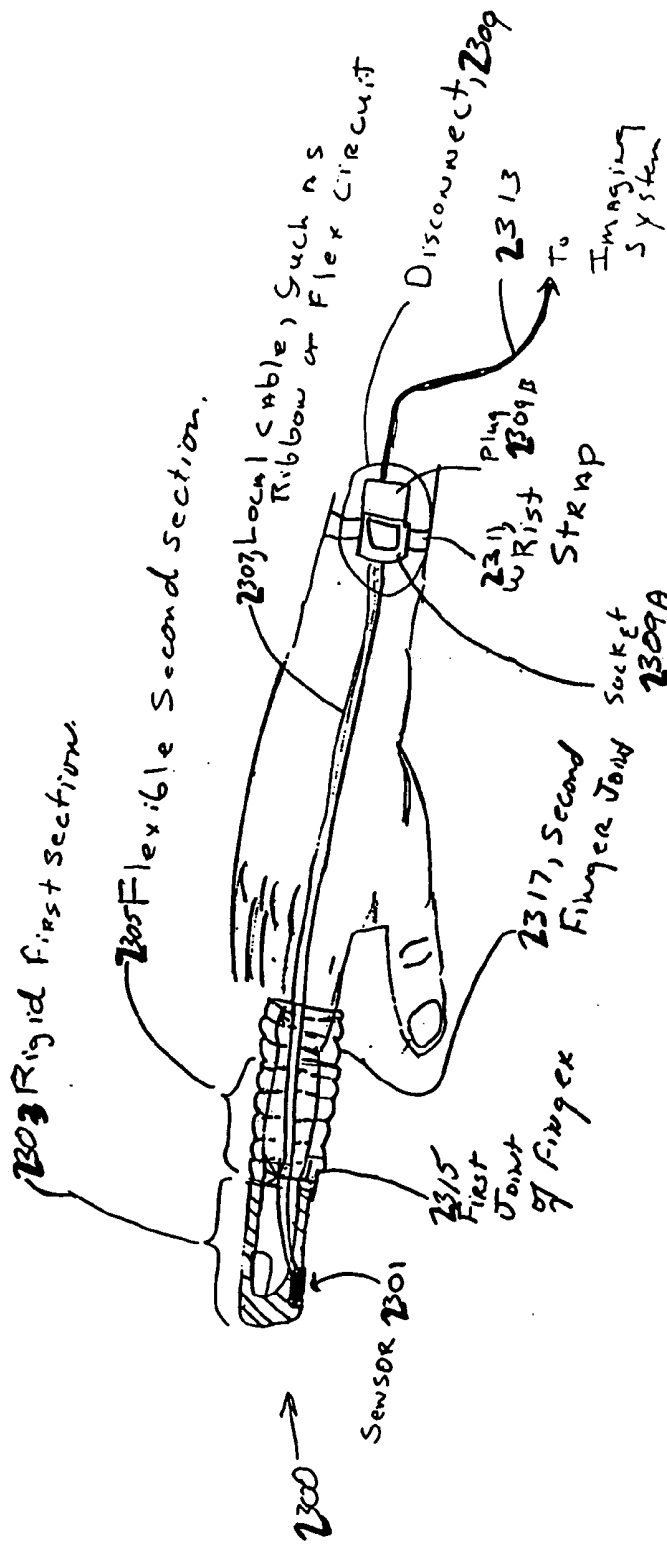 2303 Rigid First Section.
2305 Flexible Second Section.
2307, Local Cable, Such as
Ribbon or Flex Circuit
Disconnect, 2309
2313
To
Imaging
System
Plug
2309B
2311,
Wrist
Strap
Socket
2309A
2317, Second
Finger Joint
2315
First
Joint
of Finger
Sensor 2301
2300